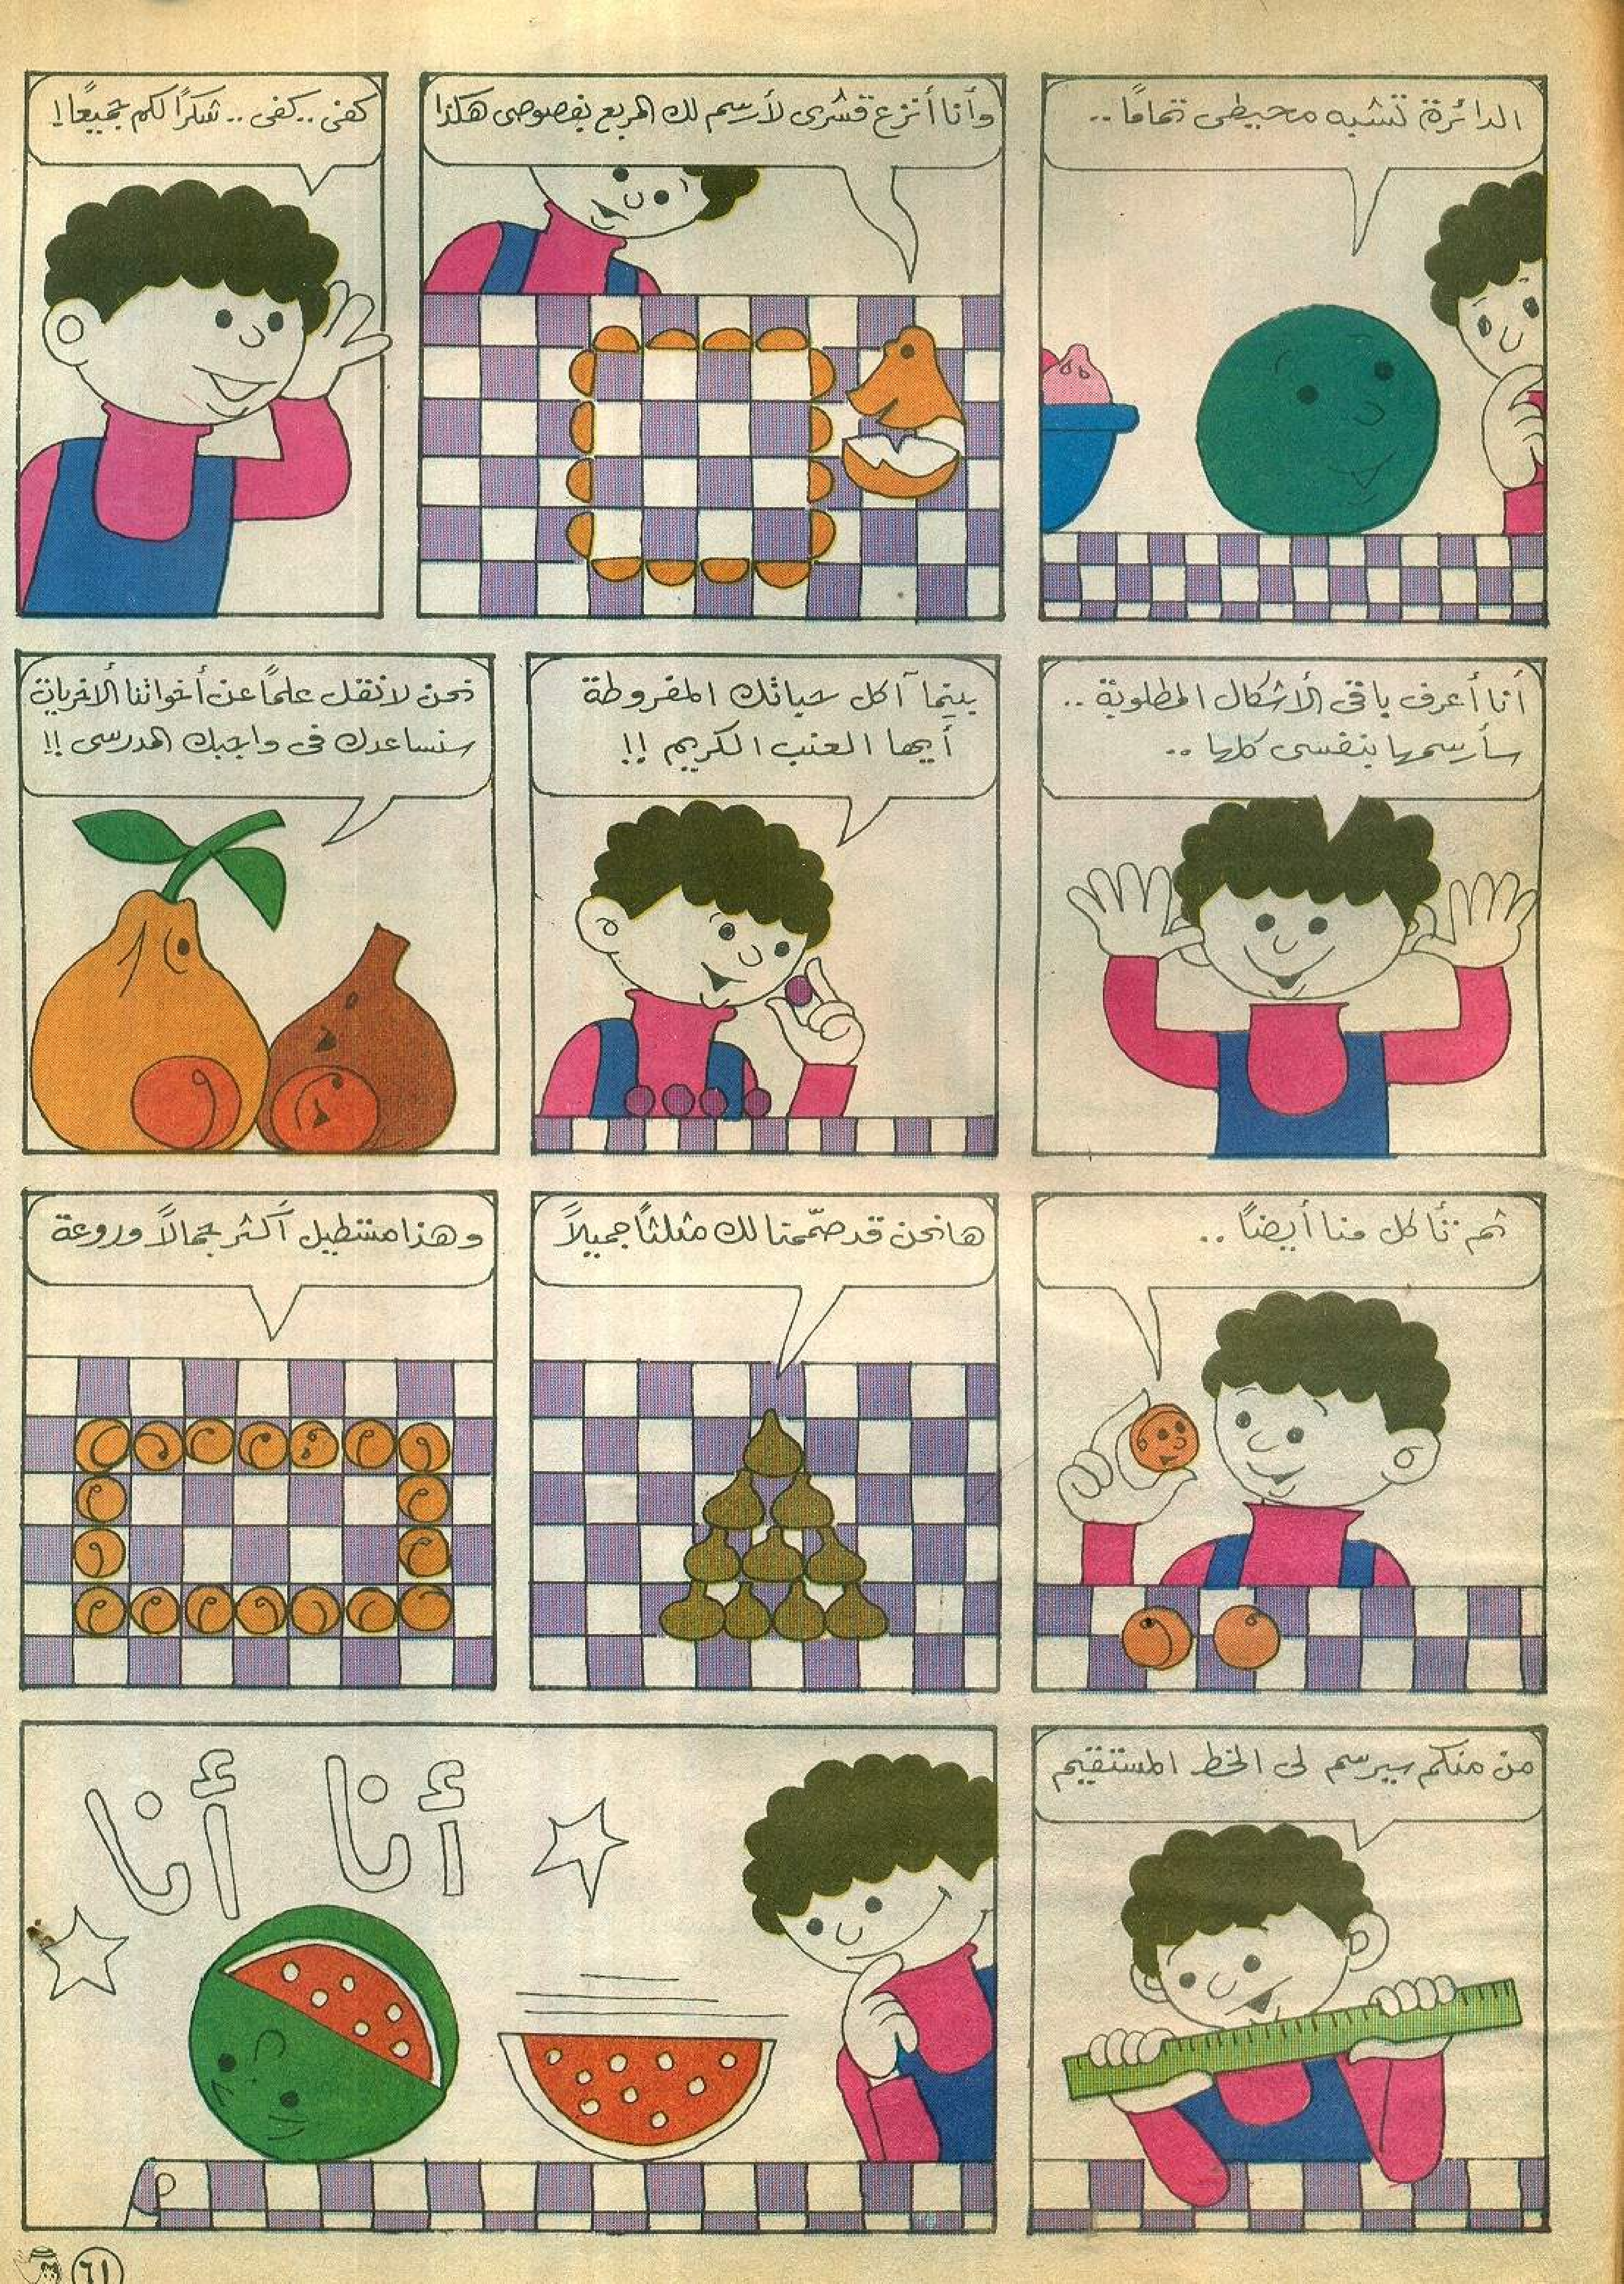 الدائرة تشبه محيطى تماماً..
وأنا أنزع قشرى لأرسم لك المربع بفصوصى هكذا
كفى..كفى.. شكراً لكم جميعاً!
أنا أعرف باقى الأشكال المطلوبة..
سأرسمها بنفسى كلها..
بينما آكل حباتك المفروطة
أيها العنب الكريم!!
نحن لا نقل علماً عن أخواتنا الأخريات
سنساعدك فى واجبك المدرسى!!
ثم تأكل منا أيضاً..
ها نحن قد صمّمنا لك مثلثاً جميلاً
وهذا مستطيل أكثر جمالاً وروعة
من منكم سيرسم لى الخط المستقيم
أنا أنا
٦١